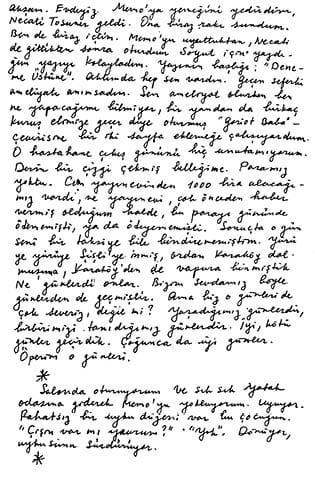 akşam. Evdeyiz. Memo'ya yemeğini yedirdim,
Necati Tosuner geldi. Ona biraz rakı sundum.
Ben de biraz içtim. Memo'yu uyuttuktan, Necati
de gittikten sonra oturdum Soyut için yazdı-
ğım yazıyı kolayladım. Yazının başlığı: "Dene-
me Üstüne". Aklımda hep sen vardın. Geçen seferki
ameliyatı anımsadım. Sen ameliyat olurken ben
ne yapacağımı bilmiyor, bir yandan da birkaç
kuruş elimize geçer diye oturmuş "Goriot Baba"
çevirisine bir iki sayfa eklemeğe çalışıyordum.
O hastahane çıkış gününü hiç unutamıyorum.
Derin bir çizgi çekmiş belleğime. Paramız
yoktu. Cem yayınevinden 1000 lira alacağı-
mız vardı, ne yayınevi, çok önceden haber
vermiş olduğum halde, bu parayı gününde
ödememişti, ya da ödeyememişti. Sonuçta o gün
seni bir taksiye bile bindirememiştim. Yürü
ye yürüye Şişli'ye inmiş, ordan Karaköy dol-
muşuna, Karaköy'den de vapura binmiştik
Ne günlerdi onlar. Bizim sevdamız böyle
günlerden de geçmiştir. Ama biz o günleri de
çok severiz, değil mi? Yaşadığımız günlerdir,
birbirimizi tanıdığımız günlerdir. İyi, kötü
günler geçirdik. Çoğunca da iyi günler.
Öperim o günleri.
*
Salonda oturuyorum ve sık sık yatak
odasına giderek Memo'yu yokluyorum. Uyuyor.
Rahatsız bir uyku düzeni var bu çocuğun.
"Çişin var mı yavrum?" - "Yok". Dönüyor,
uykusunu sürdürüyor.
*